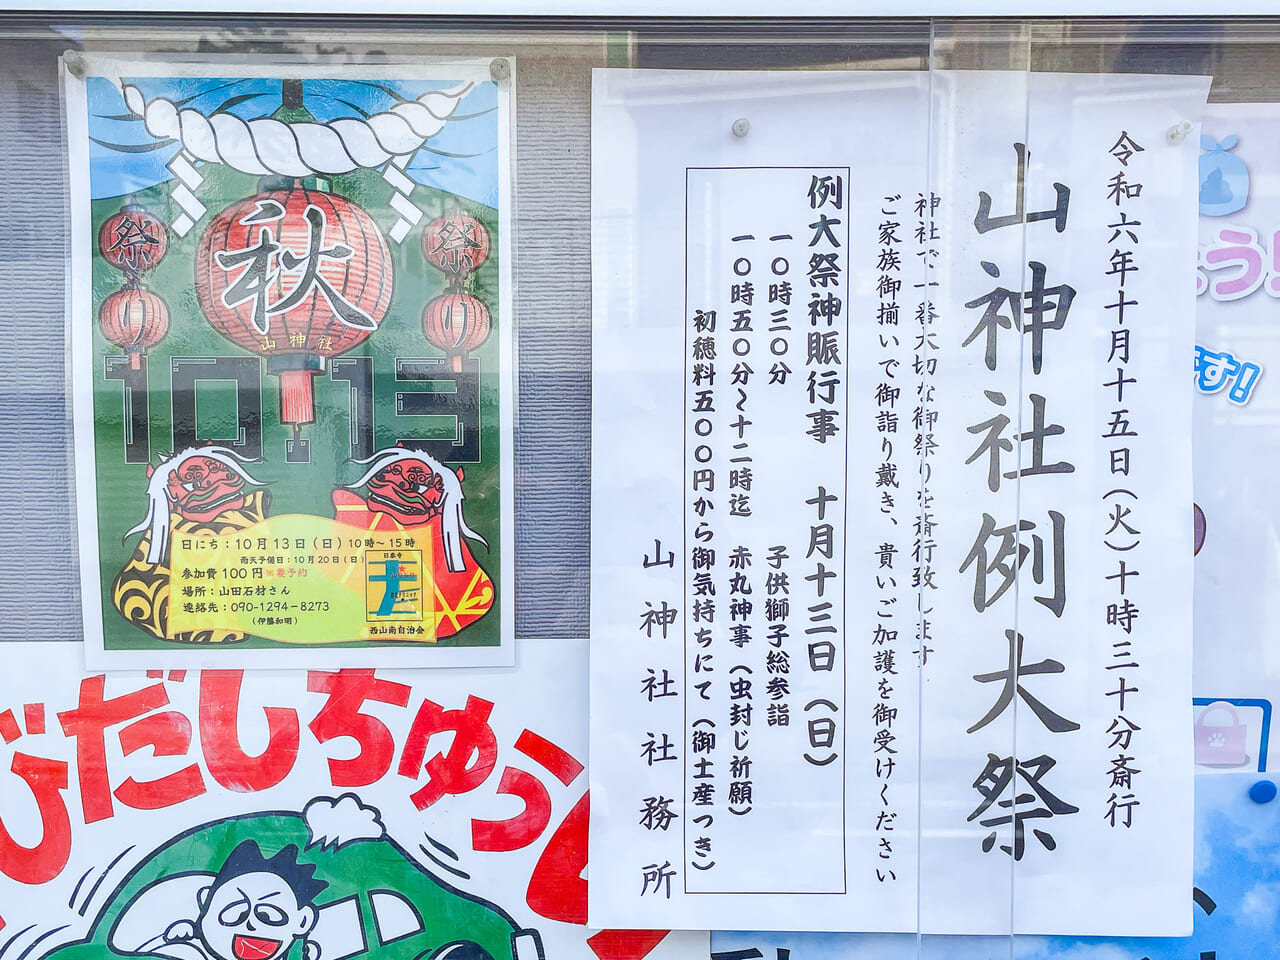 秋
祭り
祭り
山神社
10.13
日にち：10月13日（日）10時～15時
雨天予備日：10月20日（日）
参加費100円※要予約
場所：山田石材さん
連絡先：090-1294-8273
（伊藤和明）
西山南自治会
令和六年十月十五日（火）十時三十分斎行
山神社例大祭
神社で一番大切な御祭りを斎行致します
ご家族御揃いで御詣り戴き、貴いご加護を御受けください
例大祭神賑行事　十月十三日（日）
一〇時三〇分　子供獅子総参詣
一〇時五〇分～十二時迄　赤丸神事（虫封じ祈願）
初穂料五〇〇円から御気持ちにて（御土産つき）
山神社社務所
びだしちゅう